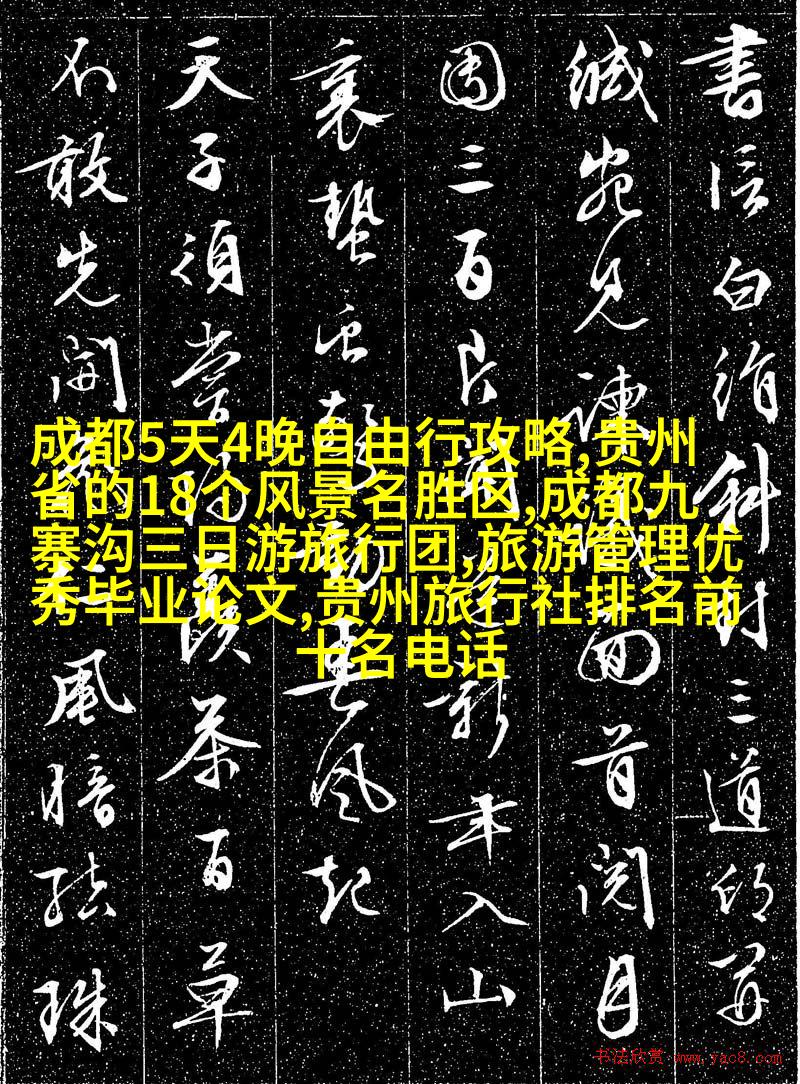 書信白絹斜封三道印開
緘宛見諫議面首閱月
團三百片聞道新年入山
裏蟄虫驚動春風起
天子須嘗陽羡茶百草
不敢先開花仁風暗結珠
成都5天4晚自由行攻略,贵州
省的18个风景名胜区,成都九
寨沟三日游旅行团,旅游管理优
秀毕业论文,贵州旅行社排名前
十名电话
书法欣赏 www.yac8.com